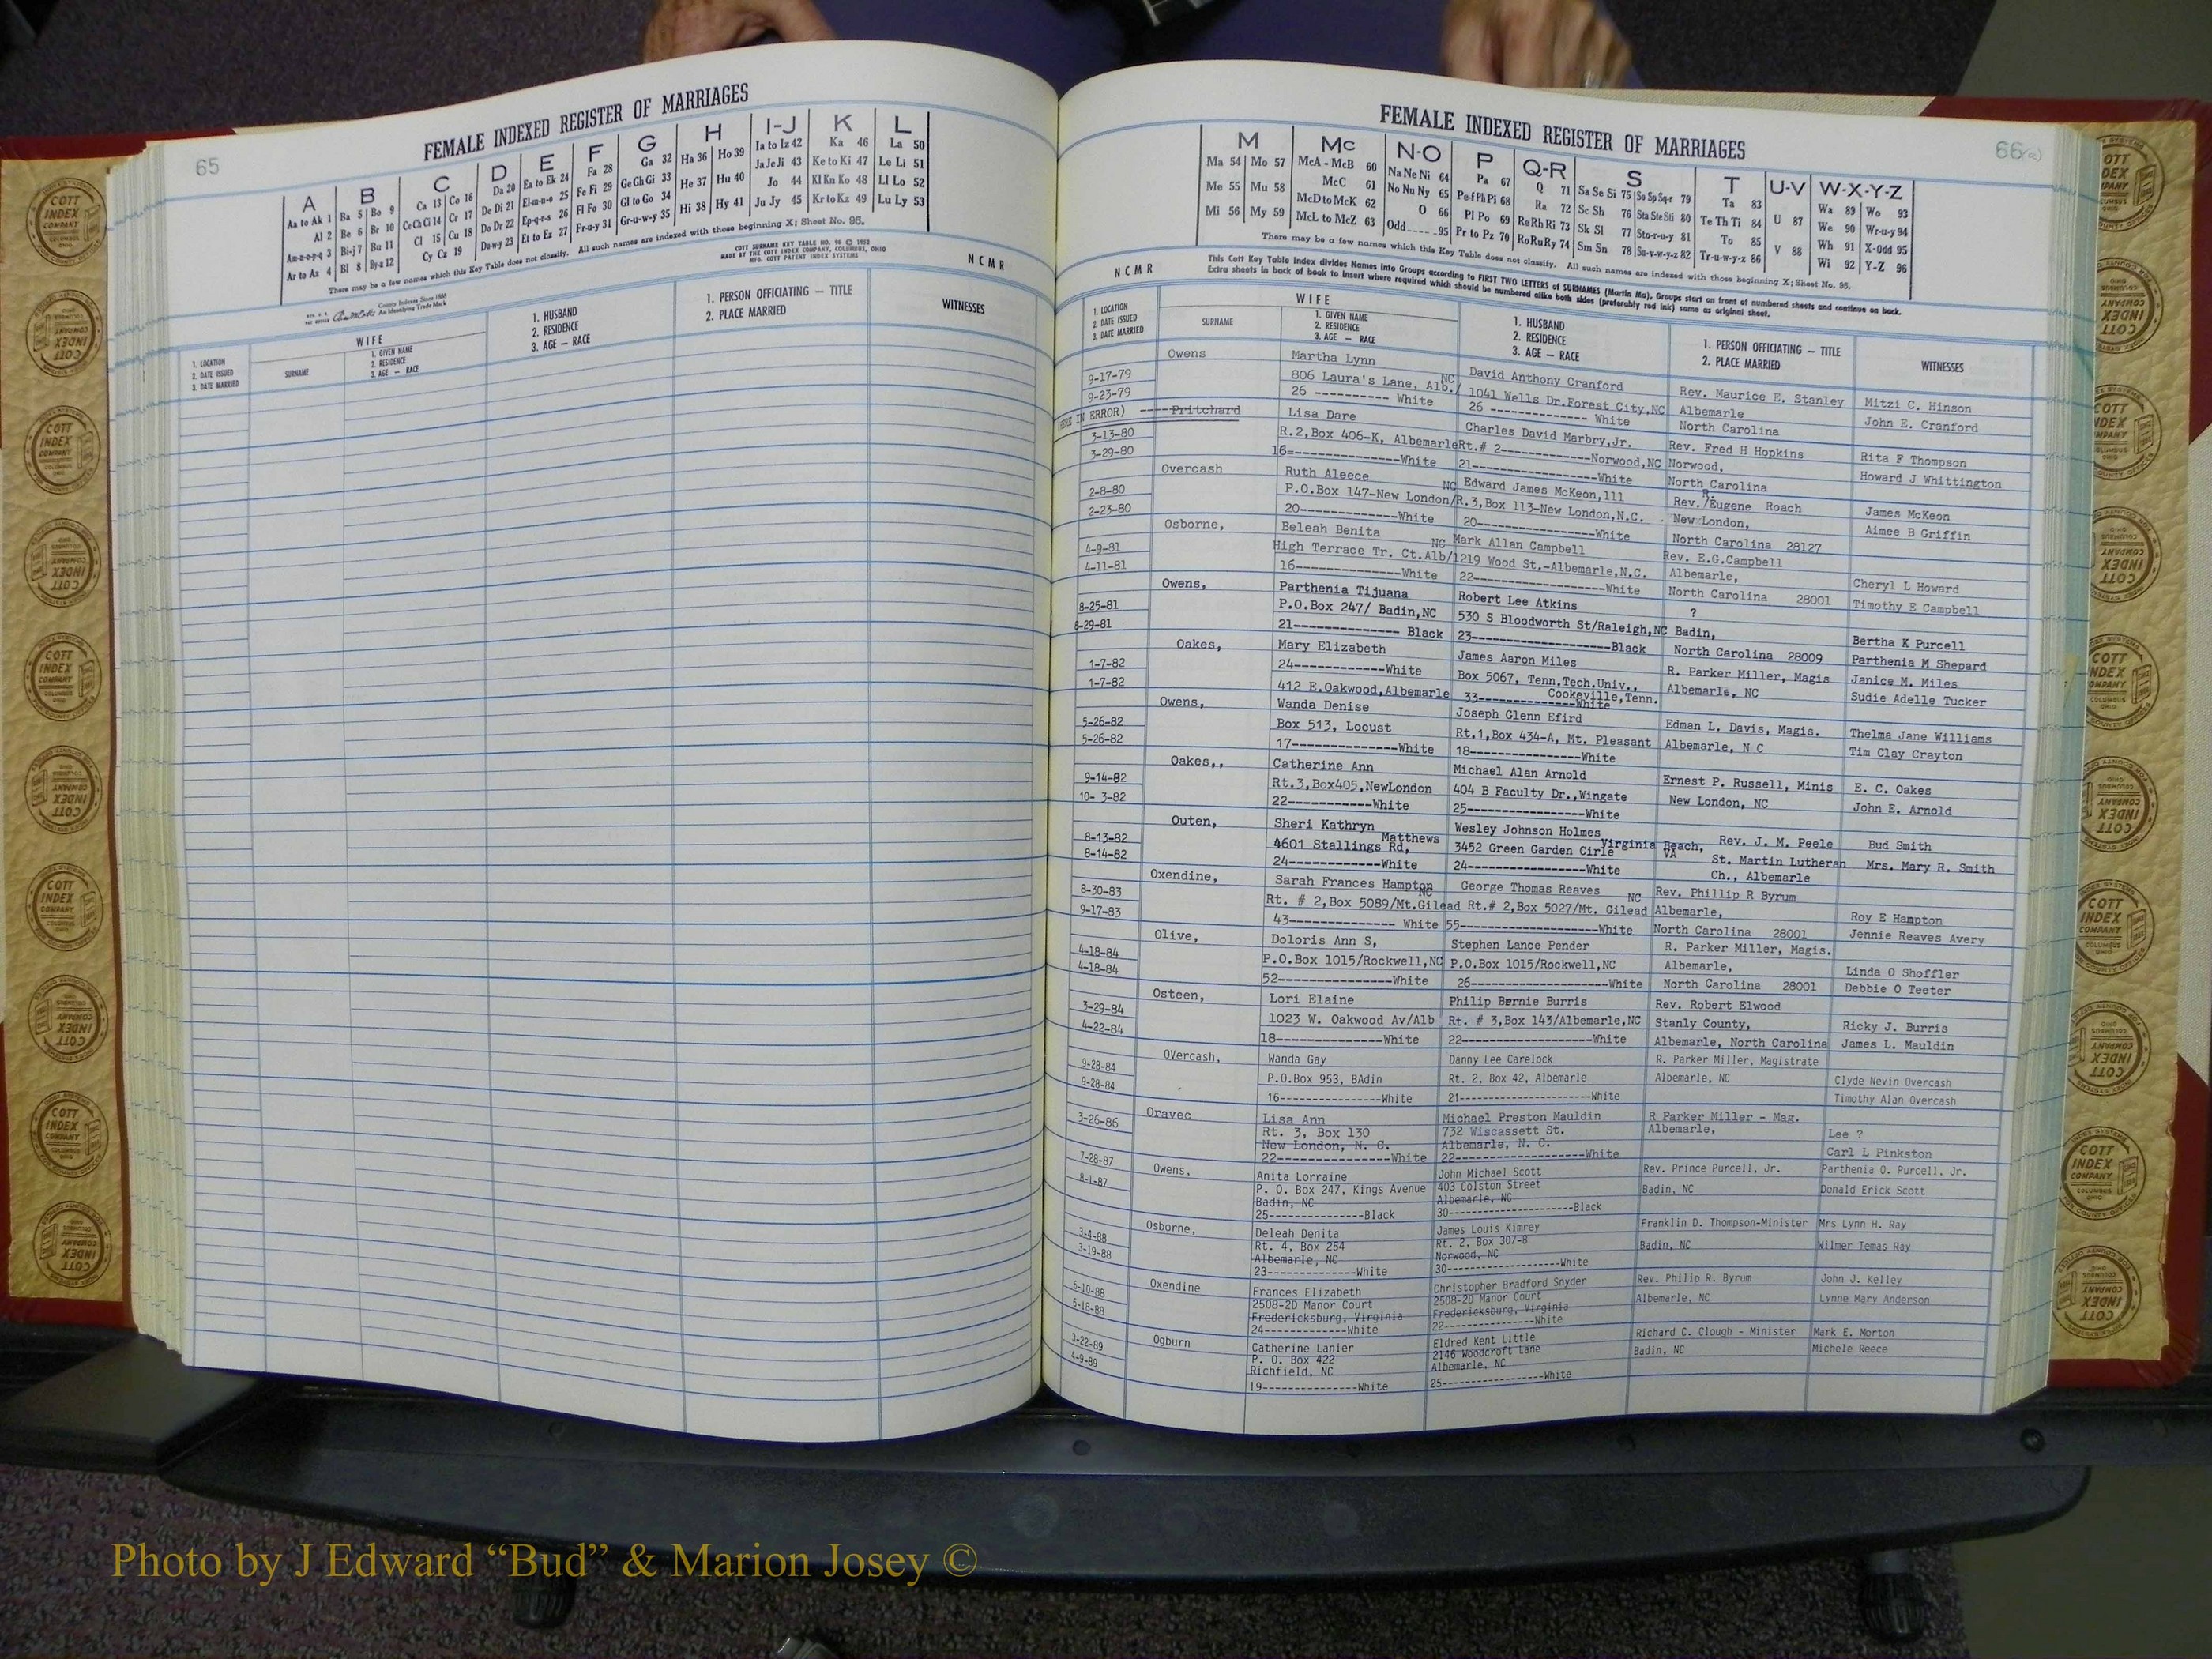 65
FEMALE INDEXED REGISTER OF MARRIAGES
A B C D E F G H I-J K L
Aa to Ak 1 Ba 5 Bo 9 Ca 13 Co 16 Da 20 Ea to Ek 24 Fa 28 Ga 32 Ha 36 Ho 39 Ia to Iz 42 Ka 46 La 50
Al 2 Be 6 Br 10 Ce Ch Ci 14 Cr 17 De Di 21 El-m-n-o 25 Fe Fi 29 Ge Gh Gi 33 He 37 Hu 40 Ja Je Ji 43 Ke to Ki 47 Le Li 51
Am-n-o-p-q 3 Bi-j 7 Bu 11 Cl 15 Cu 18 Do Dr 22 Ep-q-r-s 26 Fl Fo 30 Gl to Go 34 Hi 38 Hy 41 Jo 44 Kl Kn Ko 48 Ll Lo 52
Ar to Az 4 Bl 8 By-z 12 Cy Cz 19 Du-w-y 23 Et to Ez 27 Fr-u-y 31 Gr-u-w-y 35 Ju Jy 45 Kr to Kz 49 Lu Ly 53
There may be a few names which this Key Table does not classify. All such names are indexed with those beginning X; Sheet No. 95.
COTT SURNAME KEY TABLE NO. 96 © 1952
MADE BY THE COTT INDEX COMPANY, COLUMBUS, OHIO
MFG. COTT PATENT INDEX SYSTEMS
NCMR
County Indexes Since 1888
An Identifying Trade Mark
1. LOCATION
2. DATE ISSUED
3. DATE MARRIED
WIFE
SURNAME
1. GIVEN NAME
2. RESIDENCE
3. AGE — RACE
1. HUSBAND
2. RESIDENCE
3. AGE — RACE
1. PERSON OFFICIATING — TITLE
2. PLACE MARRIED
WITNESSES
66
FEMALE INDEXED REGISTER OF MARRIAGES
M Mc N-O P Q-R S T U-V W-X-Y-Z
Ma 54 Mo 57 McA - McB 60 Na Ne Ni 64 Pa 67 Q 71 Sa Se Si 75 So Sp Sq-r 79 Ta 83 U 87 Wa 89 Wo 93
Me 55 Mu 58 McC 61 No Nu Ny 65 Pe-f Ph Pi 68 Ra 72 Sc Sh 76 Sta Ste Sti 80 Te Th Ti 84 V 88 We 90 Wr-u-y 94
Mi 56 My 59 McD to McK 62 O 66 Pl Po 69 Re Rh Ri 73 Sk Sl 77 Sto-r-u-y 81 To 85 Wh 91 X-Odd 95
McL to McZ 63 Odd 95 Pr to Pz 70 Ro Ru Ry 74 Sm Sn 78 Su-v-w-y-z 82 Tr-u-w-y-z 86 Wi 92 Y-Z 96
There may be a few names which this Key Table does not classify. All such names are indexed with those beginning X; Sheet No. 95.
NCMR
This Cott Key Table Index divides Names into Groups according to FIRST TWO LETTERS of SURNAMES (Martin Ma), Groups start on front of numbered sheets and continue on back.
Extra sheets in back of book to insert where required which should be numbered alike both sides (preferably red ink) same as original sheet.
1. LOCATION
2. DATE ISSUED
3. DATE MARRIED
WIFE
SURNAME
1. GIVEN NAME
2. RESIDENCE
3. AGE — RACE
1. HUSBAND
2. RESIDENCE
3. AGE — RACE
1. PERSON OFFICIATING — TITLE
2. PLACE MARRIED
WITNESSES
Owens Martha Lynn David Anthony Cranford Rev. Maurice E. Stanley Mitzi C. Hinson
9-17-79 806 Laura's Lane, Alb./ NC 1041 Wells Dr.Forest City,NC Albemarle John E. Cranford
9-23-79 26 ---------- White 26 ------------- White North Carolina
ERE IN ERROR) ----Pritchard Lisa Dare Charles David Marbry,Jr. Rev. Fred H Hopkins Rita F Thompson
3-13-80 R.2,Box 406-K, Albemarle Rt.# 2------------Norwood,NC Norwood, Howard J Whittington
3-29-80 16=--------------White 21------------------White North Carolina
Overcash Ruth Aleece Edward James McKeon,111 Rev. R./Eugene Roach James McKeon
2-8-80 P.O.Box 147-New London/ NC R.3,Box 113-New London,N.C. New London, Aimee B Griffin
2-23-80 20--------------White 20------------------White North Carolina 28127
Osborne, Beleah Benita Mark Allan Campbell Rev. E.G.Campbell Cheryl L Howard
4-9-81 High Terrace Tr. Ct.Alb/ NC 1219 Wood St.-Albemarle,N.C. Albemarle, Timothy E Campbell
4-11-81 16---------------White 22-------------------White North Carolina 28001
Owens, Parthenia Tijuana Robert Lee Atkins ? Bertha K Purcell
8-25-81 P.O.Box 247/ Badin,NC 530 S Bloodworth St/Raleigh,NC Badin, Parthenia M Shepard
8-29-81 21--------------- Black 23--------------------Black North Carolina 28009
Oakes, Mary Elizabeth James Aaron Miles R. Parker Miller, Magis Janice M. Miles
1-7-82 24-------------White Box 5067, Tenn.Tech.Univ., Albemarle, NC Sudie Adelle Tucker
1-7-82 412 E.Oakwood,Albemarle Cookeville,Tenn. 33--------------White
Owens, Wanda Denise Joseph Glenn Efird Edman L. Davis, Magis. Thelma Jane Williams
5-26-82 Box 513, Locust Rt.1,Box 434-A, Mt. Pleasant Albemarle, N C Tim Clay Crayton
5-26-82 17---------------White 18----------------White
Oakes,, Catherine Ann Michael Alan Arnold Ernest P. Russell, Minis E. C. Oakes
9-14-82 Rt.3,Box405,NewLondon 404 B Faculty Dr.,Wingate New London, NC John E. Arnold
10- 3-82 22------------White 25------------------White
Outen, Sheri Kathryn Wesley Johnson Holmes Rev. J. M. Peele Bud Smith
8-13-82 4601 Stallings Rd, Matthews 3452 Green Garden Cirle Virginia Beach, VA St. Martin Lutheran Mrs. Mary R. Smith
8-14-82 24-------------White 24------------------White Ch., Albemarle
Oxendine, Sarah Frances Hampton George Thomas Reaves Rev. Phillip R Byrum
8-30-83 Rt. # 2,Box 5089/Mt.Gilead NC Rt.# 2,Box 5027/Mt. Gilead NC Albemarle, Roy E Hampton
9-17-83 43--------------- White 55----------------------White North Carolina 28001 Jennie Reaves Avery
Olive, Doloris Ann S, Stephen Lance Pender R. Parker Miller, Magis.
4-18-84 P.O.Box 1015/Rockwell,NC P.O.Box 1015/Rockwell,NC Albemarle, Linda O Shoffler
4-18-84 52-----------------White 26---------------------White North Carolina 28001 Debbie O Teeter
Osteen, Lori Elaine Philip Bernie Burris Rev. Robert Elwood
3-29-84 1023 W. Oakwood Av/Alb Rt. # 3,Box 143/Albemarle,NC Stanly County, Ricky J. Burris
4-22-84 18----------------White 22--------------------White Albemarle, North Carolina James L. Mauldin
OVercash, Wanda Gay Danny Lee Carelock R. Parker Miller, Magistrate
9-28-84 P.O.Box 953, BAdin Rt. 2, Box 42, Albemarle Albemarle, NC Clyde Nevin Overcash
9-28-84 16-----------------White 21----------------------White Timothy Alan Overcash
Oravec Lisa Ann Michael Preston Mauldin R Parker Miller - Mag.
3-26-86 Rt. 3, Box 130 732 Wiscassett St. Albemarle, Lee ?
New London, N. C. Albemarle, N. C. Carl L Pinkston
22------------------White 22--------------------White
Owens, Anita Lorraine John Michael Scott Rev. Prince Purcell, Jr. Parthenia O. Purcell, Jr.
7-28-87 P. O. Box 247, Kings Avenue 403 Colston Street Badin, NC Donald Erick Scott
8-1-87 Badin, NC Albemarle, NC
25----------------Black 30---------------------Black
Osborne, Deleah Denita James Louis Kimrey Franklin D. Thompson-Minister Mrs Lynn H. Ray
3-4-88 Rt. 4, Box 254 Rt. 2, Box 307-B Badin, NC Wilmer Temas Ray
3-19-88 Albemarle, NC Norwood, NC
23---------------White 30-------------------White
Oxendine Frances Elizabeth Christopher Bradford Snyder Rev. Philip R. Byrum John J. Kelley
6-10-88 2508-2D Manor Court 2508-2D Manor Court Albemarle, NC Lynne Mary Anderson
6-18-88 Fredericksburg, Virginia Fredericksburg, Virginia
24--------------White 22---------------White
Ogburn Catherine Lanier Eldred Kent Little Richard C. Clough - Minister Mark E. Morton
3-22-89 P. O. Box 422 2146 Woodcroft Lane Badin, NC Michele Reece
4-9-89 Richfield, NC Albemarle, NC
19----------------White 25-----------------White
Photo by J Edward “Bud” & Marion Josey ©